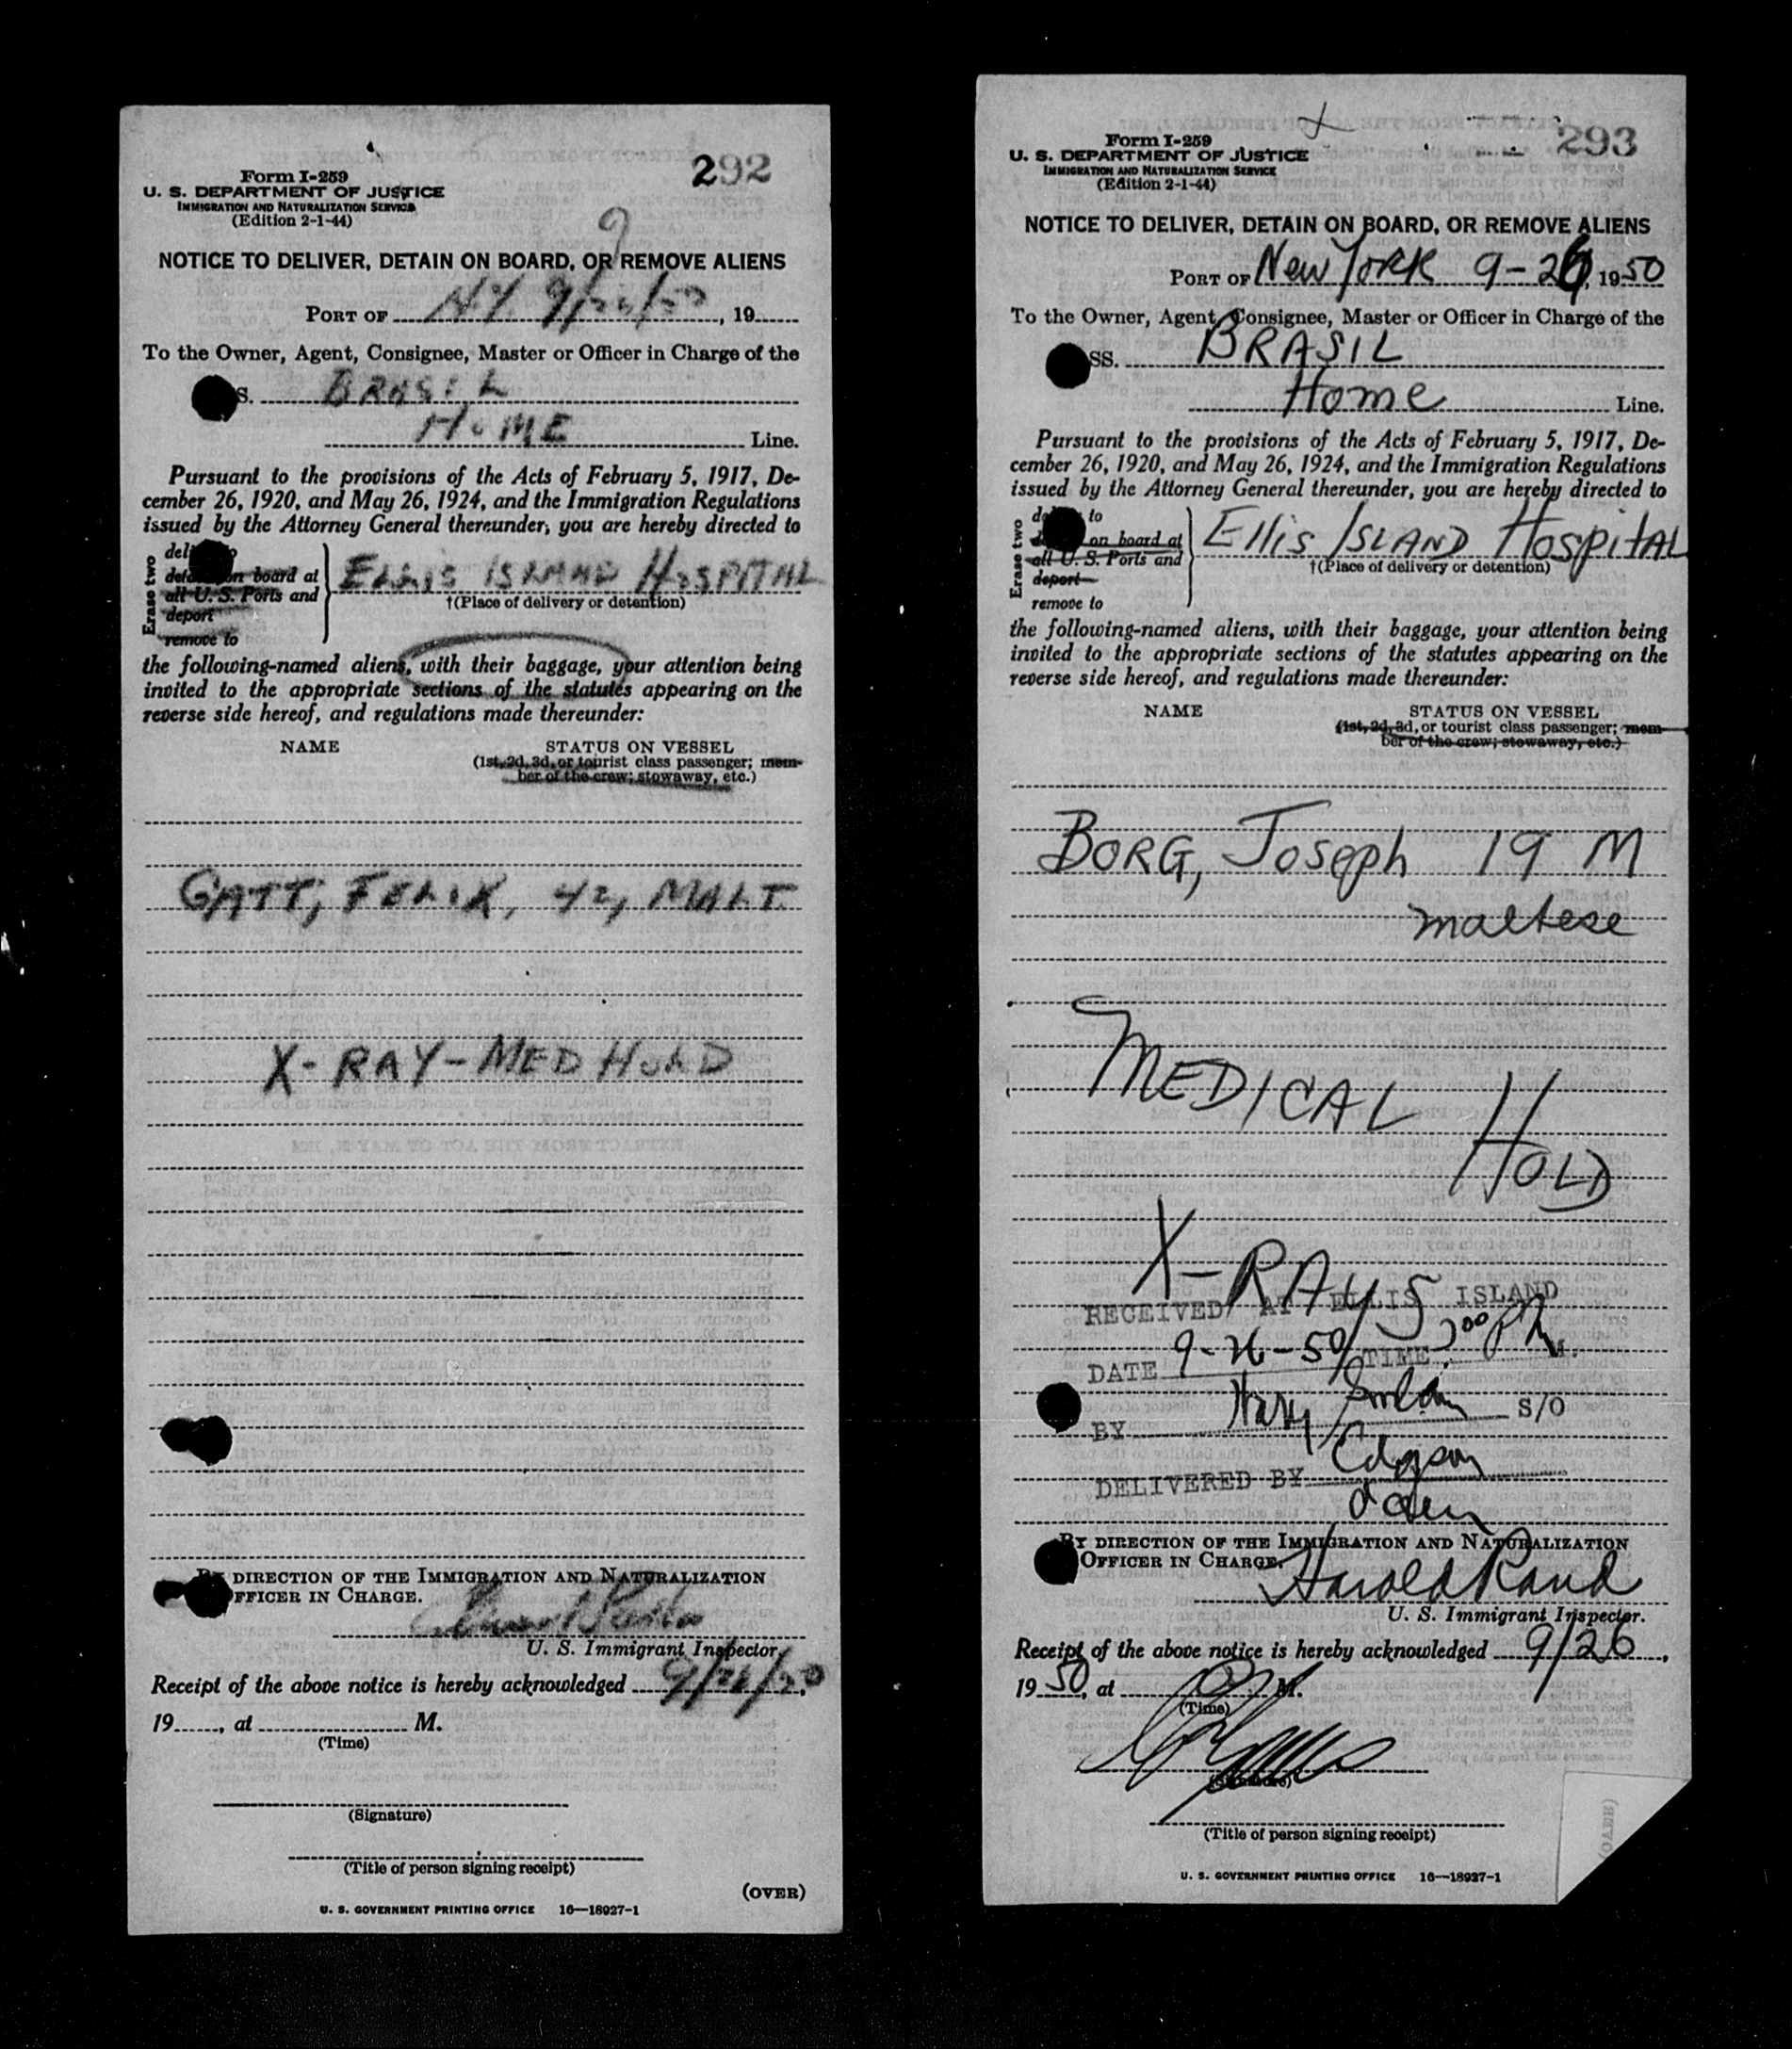 292
Form I-259
U. S. DEPARTMENT OF JUSTICE
IMMIGRATION AND NATURALIZATION SERVICE
(Edition 2-1-44)
9
NOTICE TO DELIVER, DETAIN ON BOARD, OR REMOVE ALIENS
PORT OF N.Y. 9/26/50, 19
To the Owner, Agent, Consignee, Master or Officer in Charge of the
S. BRASIL
HOME Line.
Pursuant to the provisions of the Acts of February 5, 1917, De-
cember 26, 1920, and May 26, 1924, and the Immigration Regulations
issued by the Attorney General thereunder, you are hereby directed to
Erase two
on board at
all U. S. Ports and
deport
remove to
ELLIS ISLAND HOSPITAL
†(Place of delivery or detention)
the following-named aliens, with their baggage, your attention being
invited to the appropriate sections of the statutes appearing on the
reverse side hereof, and regulations made thereunder:
NAME STATUS ON VESSEL
(1st, 2d, 3d, or tourist class passenger; mem-
ber of the crew; stowaway, etc.)
GATT, FELIX, 42, MALT.
X-RAY-MED HOLD
BY DIRECTION OF THE IMMIGRATION AND NATURALIZATION
OFFICER IN CHARGE.
U. S. Immigrant Inspector.
Receipt of the above notice is hereby acknowledged 9/26/50,
19, at M.
(Time)
(Signature)
(Title of person signing receipt)
(OVER)
U. S. GOVERNMENT PRINTING OFFICE 16—18927-1
293
Form I-259
U. S. DEPARTMENT OF JUSTICE
IMMIGRATION AND NATURALIZATION SERVICE
(Edition 2-1-44)
NOTICE TO DELIVER, DETAIN ON BOARD, OR REMOVE ALIENS
PORT OF New York 9-26, 1950
To the Owner, Agent, Consignee, Master or Officer in Charge of the
SS. BRASIL
Home Line.
Pursuant to the provisions of the Acts of February 5, 1917, De-
cember 26, 1920, and May 26, 1924, and the Immigration Regulations
issued by the Attorney General thereunder, you are hereby directed to
Erase two
to
on board at
all U. S. Ports and
deport
remove to
Ellis Island Hospital
†(Place of delivery or detention)
the following-named aliens, with their baggage, your attention being
invited to the appropriate sections of the statutes appearing on the
reverse side hereof, and regulations made thereunder:
NAME STATUS ON VESSEL
(1st, 2d, 3d, or tourist class passenger; mem-
ber of the crew; stowaway, etc.)
BORG, Joseph 19 M
maltese
MEDICAL HOLD
X-RAYS
RECEIVED AT ELLIS ISLAND
DATE 9-26-50 TIME M.
BY S/O
DELIVERED BY
BY DIRECTION OF THE IMMIGRATION AND NATURALIZATION
OFFICER IN CHARGE.
Harold Rand
U. S. Immigrant Inspector.
Receipt of the above notice is hereby acknowledged 9/26,
1950, at M.
(Time)
(Signature)
(Title of person signing receipt)
U. S. GOVERNMENT PRINTING OFFICE 16—18927-1
(OVER)